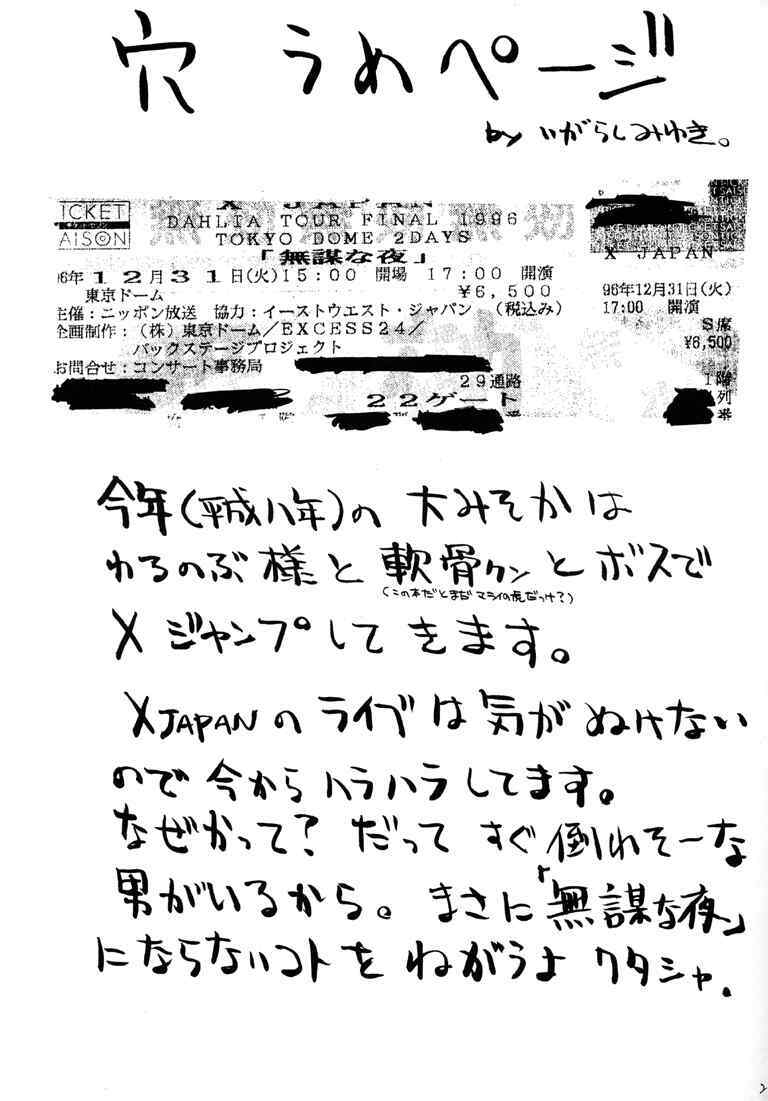 穴 うめページ
by いがらしみゆき。
TICKET
AISON
X JAPAN
DAHLIA TOUR FINAL 1996
TOKYO DOME 2DAYS
「無謀な夜」
96年12月31日(火)15:00 開場 17:00 開演
東京ドーム ¥6,500
主催:ニッポン放送 協力:イーストウエスト・ジャパン (税込み)
企画制作:(株)東京ドーム/EXCESS24/
バックステージプロジェクト
お問合せ:コンサート事務局
29通路
22ゲート
番
X JAPAN
96年12月31日(火)
17:00 開演
S席
¥6,500
1階
列
番
今年(平成八年)の 大みそかは
わるのぶ様と 軟骨クンと ボスで
(この本だとまだ マライの虎だっけ?)
X ジャンプして きます。
X JAPANの ライブは 気が ぬけない
ので 今から ハラハラしてます。
なぜかって? だって すぐ 倒れそーな
男がいるから。 まさに「無謀な夜」
にならないコトを ねがうよ ワタシャ.